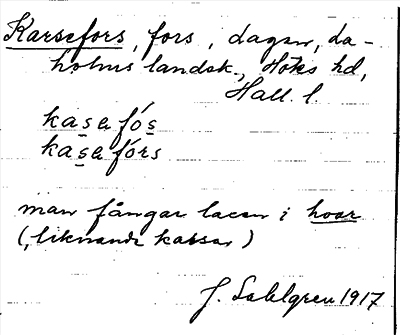 Karsefors, fors, Lagan, La-
holms landsk., Höks hd,
Hall. l.
kasefós
kasefórs
man fångar laxen i hoar
(, liknande kassar)
J. Sahlgren 1917